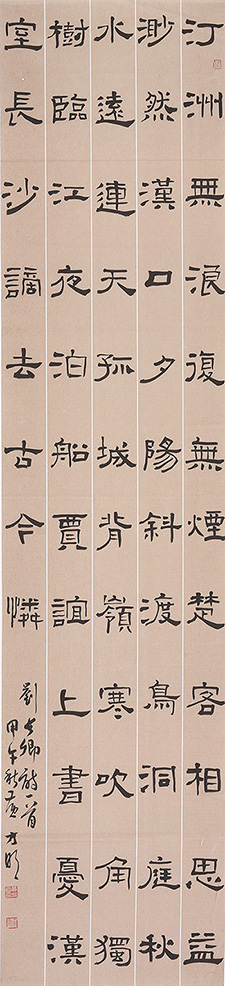 汀洲無浪復無煙楚客相思益
渺然漢口夕陽斜渡鳥洞庭秋
水遠連天孤城背嶺寒吹角獨
樹臨江夜泊船賈誼上書憂漢
室長沙謫去古今憐
劉長卿詩一首
甲午秋